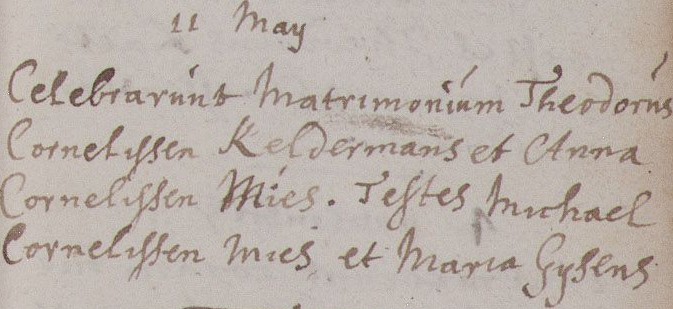 11 May
Celebrarunt Matrimonium Theodorus
Cornelissen Keldermans et Anna
Cornelissen Mies. Testes Michael
Cornelissen Mies et Maria Gysens